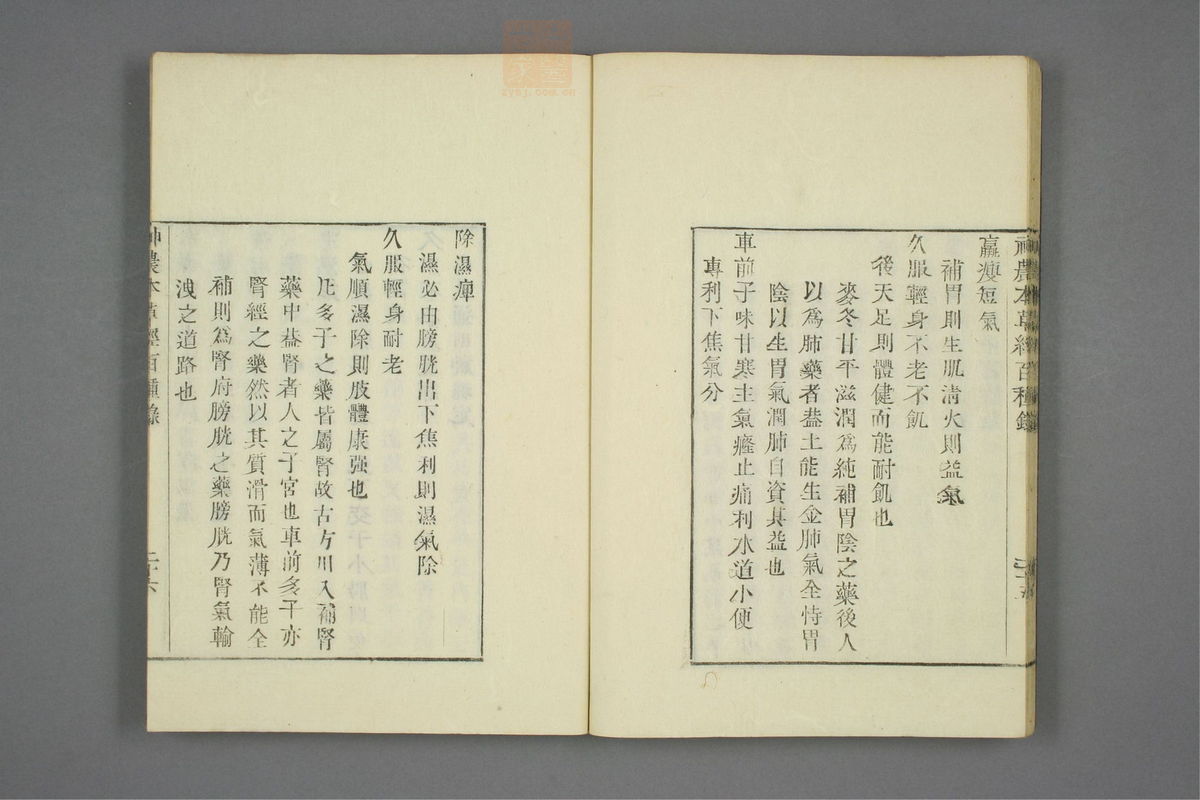 神農本草經百種錄
羸瘦短氣
補胃則生肌清火則益氣
久服輕身不老不飢
後天足則體健而能耐飢也
麥冬甘平滋潤為純補胃陰之藥後人
以為肺藥者葢土能生金肺氣全恃胃
陰以生胃氣潤肺自資其益也
車前子味甘寒主氣癃止痛利水道小便
專利下焦氣分
除濕痺
濕必由膀胱出下焦利則濕氣除
久服輕身耐老
氣順濕除則肢體康强也
凡多子之藥皆屬腎故古方用入補腎
藥中葢腎者人之子宮也車前多子亦
腎經之藥然以其質滑而氣薄不能全
補則為腎府膀胱之藥膀胱乃腎氣輸
洩之道路也
神農本草經百種錄
二十六
zysj.com.cn